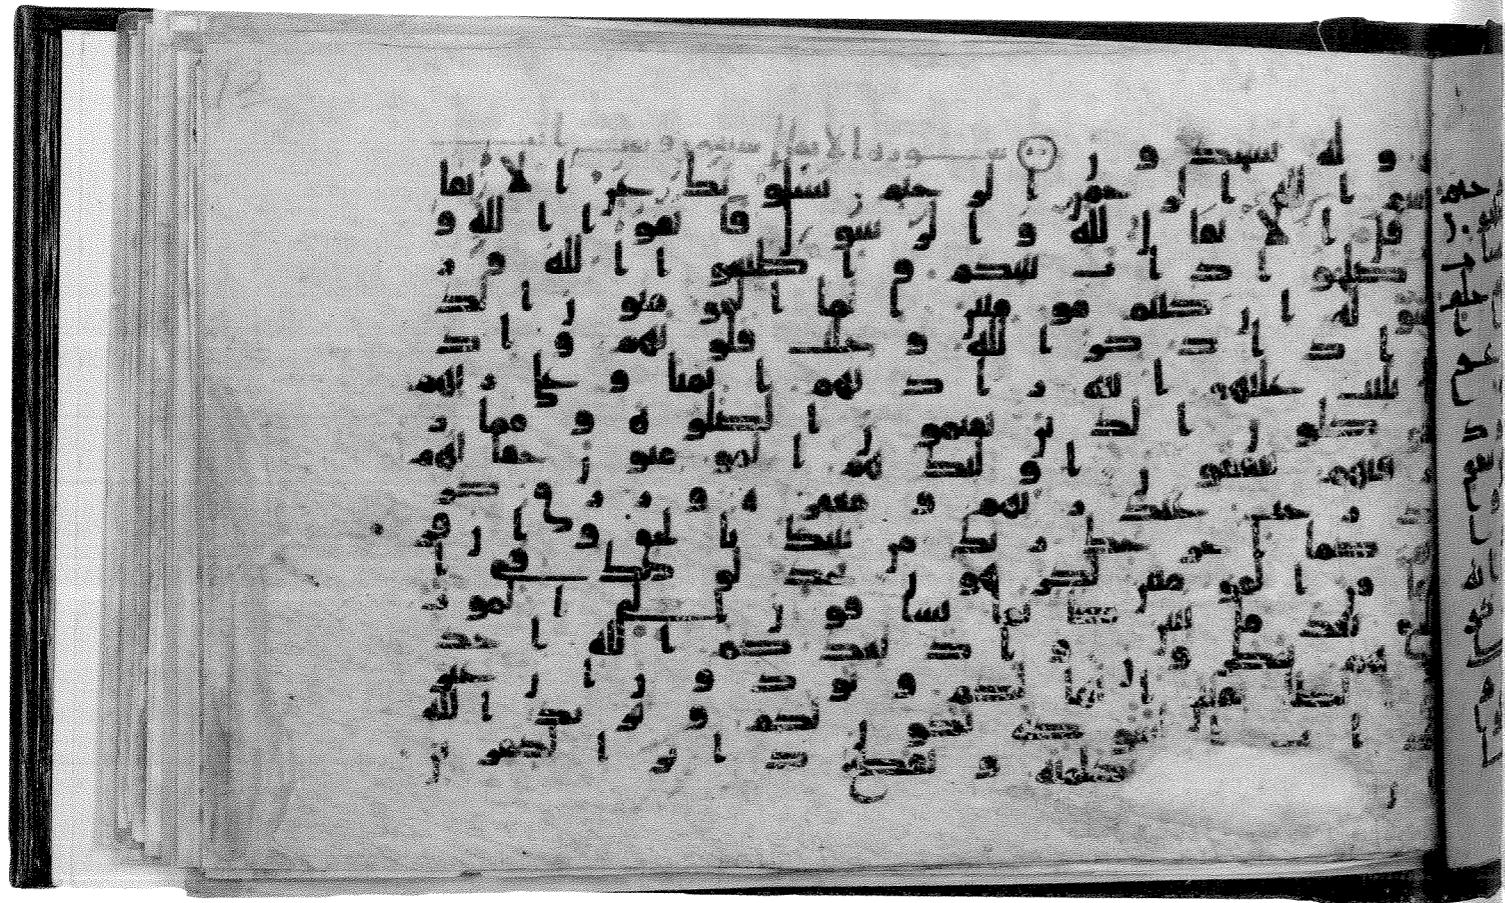 و له يسجدو ن
بسم الله الرحمن الرحيم يسلونك عن الانفا
ل قل الانفال لله والرسول فاتقوا الله و
اصلحوا ذات بينكم واطيعوا الله و ر
سوله ان كنتم مومنين انما المومنون الذ
ين اذا ذكر الله وجلت قلوبهم واذ
ا تليت عليهم ايته زادتهم ايمنا وعلى ربهم
يتوكلون الذين يقيمون الصلوة ومما ر
زقنهم ينفقون اوليك هم المومنون حقا لهم
درجت عند ربهم ومغفرة ورزق كر
يم كما اخرجك ربك من بيتك بالحق وان فر
يقا من المومنين لكرهون يجدلونك في ا
لحق بعد ما تبين كانما يساقون الى المو
ت وهم ينظرون واذ يعدكم الله احد
ى الطايفتين انها لكم وتودون ان غير
ذات الشوكة تكون لكم ويريد الله
ان يحق الحق بكلمته ويقطع دابر الكفر